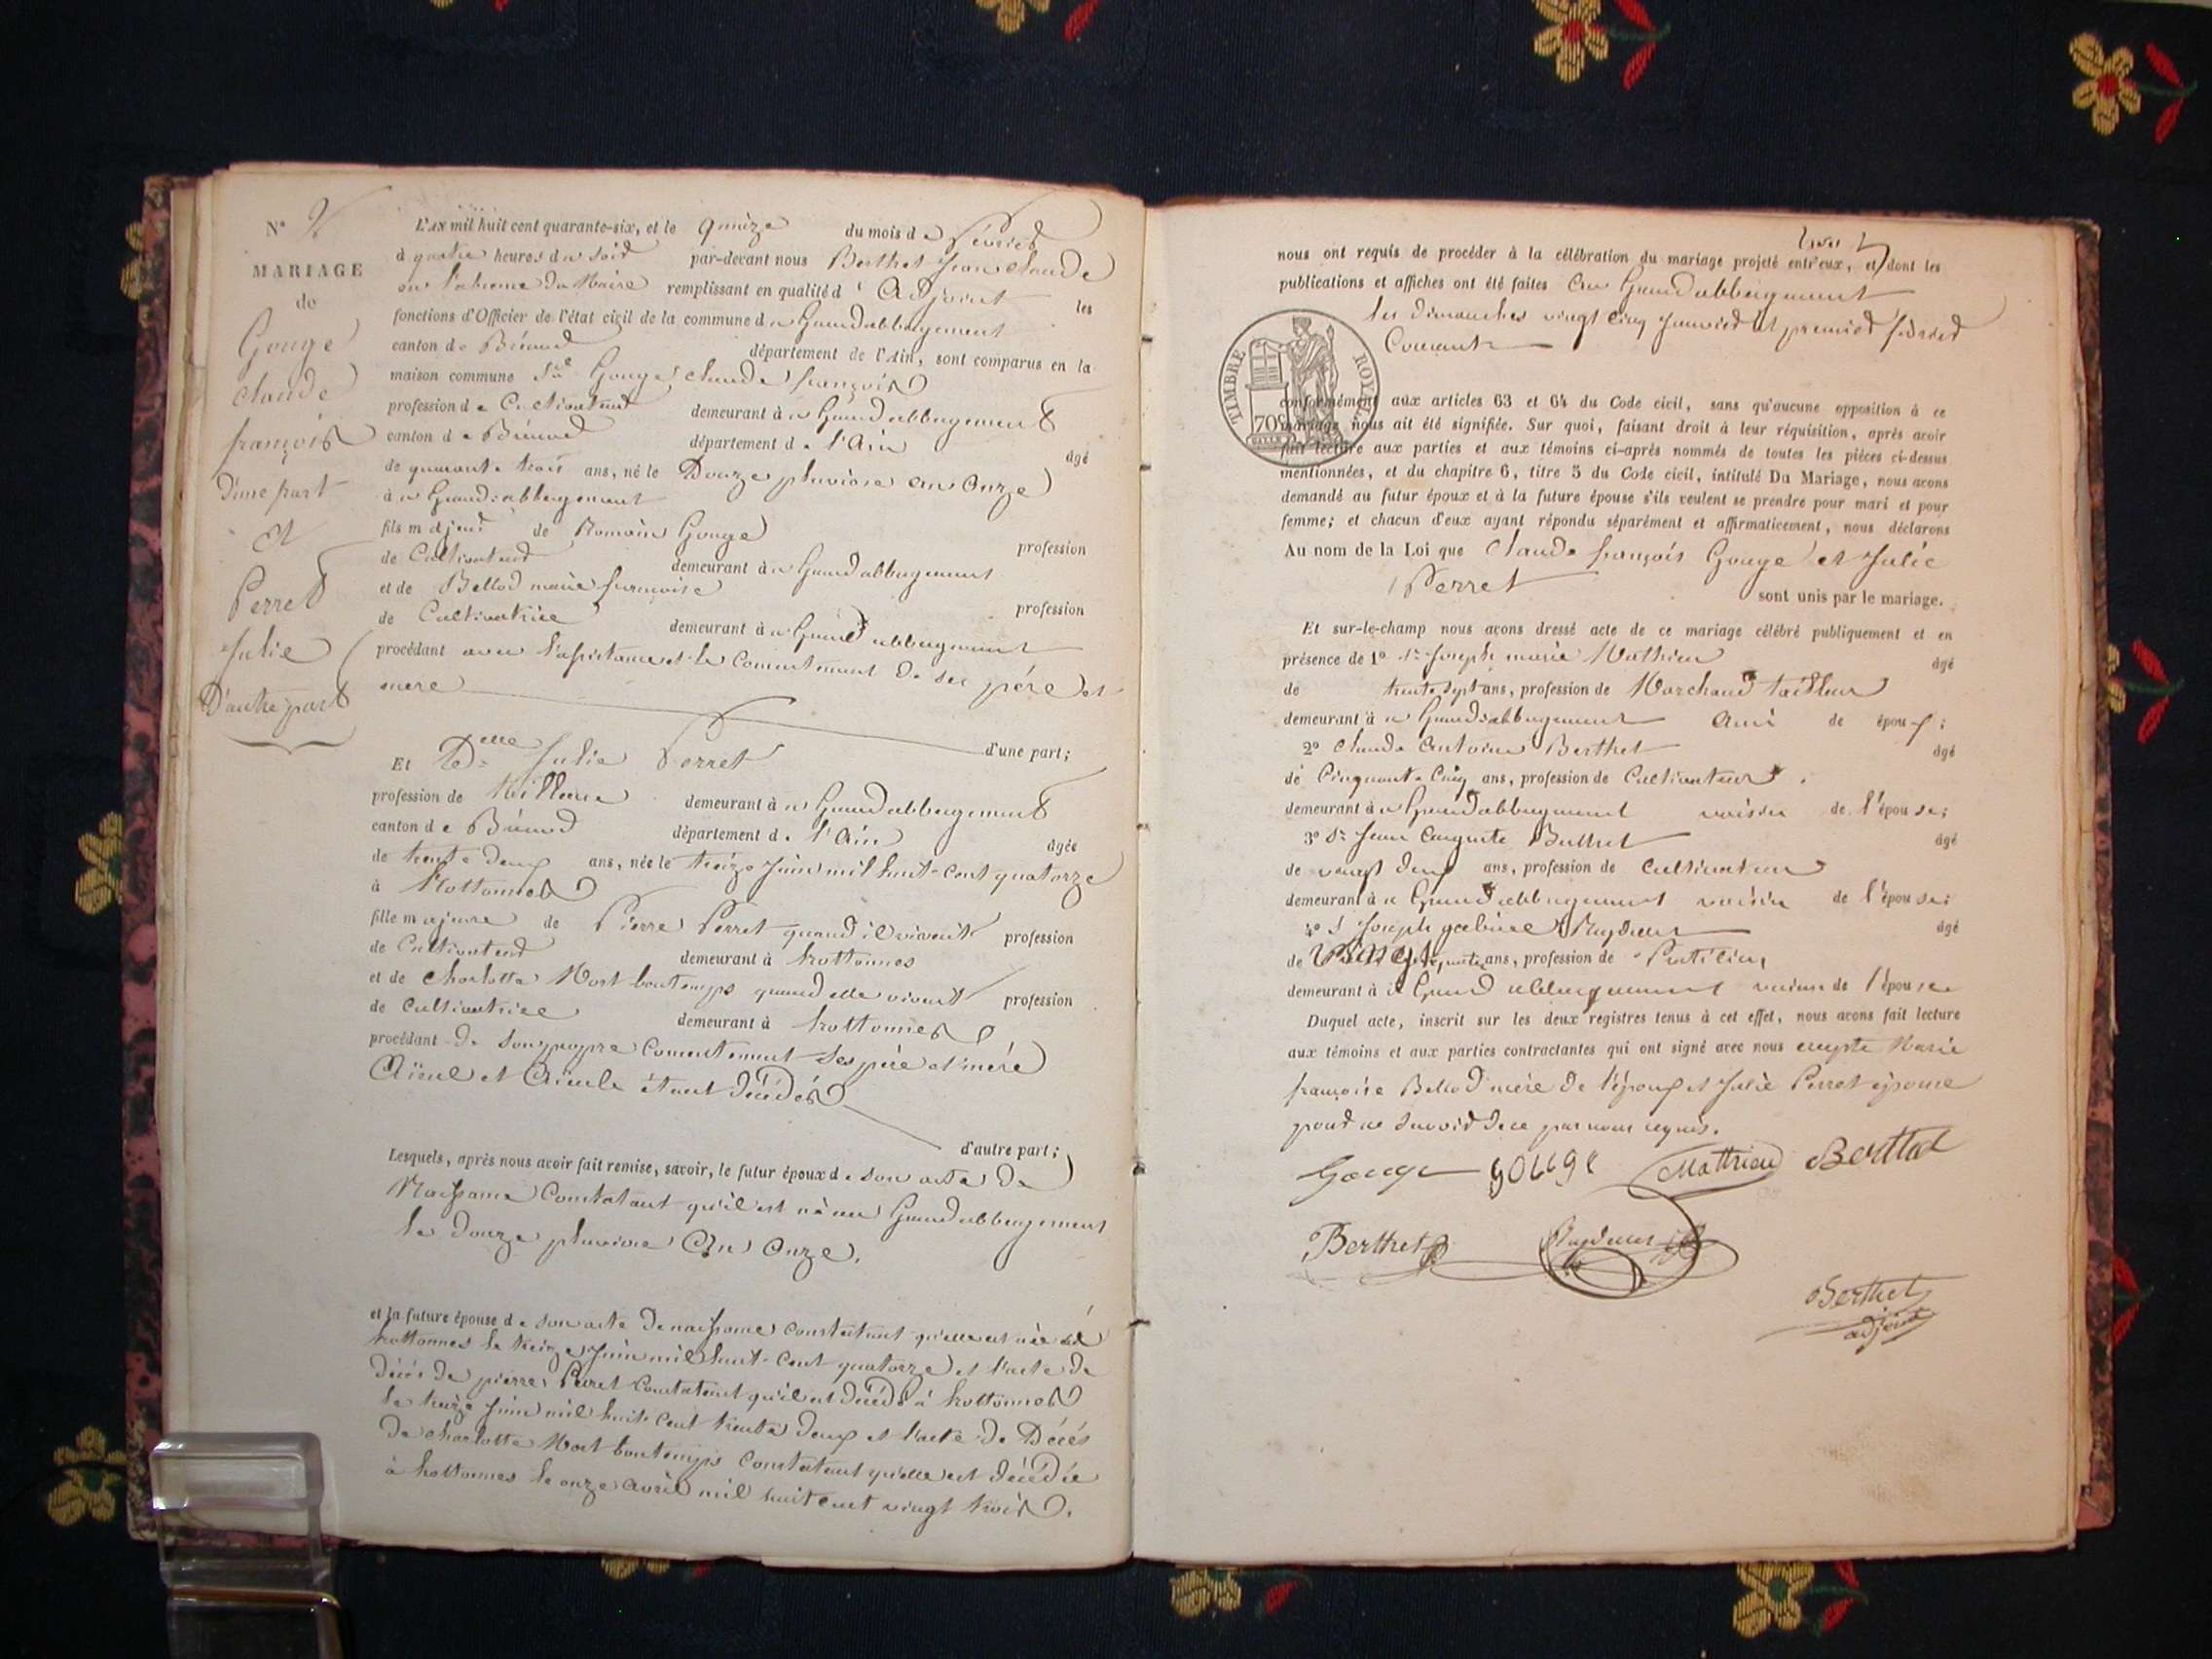 N° 2
MARIAGE
de
Gouge
Claude
françois
D'une part
et
Perret
Julie
D'autre part
L'AN mil huit cent quarante-six, et le quinze du mois de février
à quatre heures du soir par-devant nous Berthet Jean Claude
en l'absence du Maire remplissant en qualité d'Adjoint les
fonctions d'Officier de l'état civil de la commune du Grandabbergement
canton de Brénod département de l'Ain, sont comparus en la
maison commune Gouge Claude françois
profession de Cultivateur demeurant à Grandabbergement
canton de Brénod département de l'Ain âgé
de quarante trois ans, né le Douze pluviose an Onze
à Grandabbergement
fils majeur de Romain Gouge profession
de Cultivateur demeurant à Grandabbergement
et de Bellod marie françoise profession
de Cultivatrice demeurant à Grandabbergement
procédant avec l'assistance et le consentement de ses père et
mere d'une part;
Et Delle Julie Perret
profession de tailleuse demeurant à Grandabbergement
canton de Brénod département de l'Ain âgée
de trente deux ans, née le treize Juin mil huit-cent quatorze
à hottonnes
fille majeure de Pierre Perret quand il vivait profession
de Cultivateur demeurant à hottonnes
et de Charlotte Mort-boutemps quand elle vivait profession
de Cultivatrice demeurant à hottonnes
procédant de son propre Consentement ses père et mère
Aïeul et Aïeule étant décédés
d'autre part;
Lesquels, après nous avoir fait remise, savoir, le futur époux de son acte de
Naissance Constatant qu'il est né au Grandabbergement
le douze pluviose An Onze.
et la future épouse de son acte de naissance constatant qu'elle est née à
hottonnes le treize Juin mil huit-cent quatorze et l'acte de
décès de pierre Perret Constatant qu'il est décédé à hottonnes
le treize Juin mil huit cent trente deux et l'acte de Décés
de charlotte Mort boutemps Constatant qu'elle est décédée
à hottonnes le onze avril mil huit cent vingt trois.
nous ont requis de procéder à la célébration du mariage projeté entr'eux, et dont les
publications et affiches ont été faites au Grandabbergement
les dimanches vingt cinq Janvier et premier février
Courant
TIMBRE ROYAL
70c
conformément aux articles 63 et 64 du Code civil, sans qu'aucune opposition à ce
mariage nous ait été signifiée. Sur quoi, faisant droit à leur réquisition, après avoir
fait lecture aux parties et aux témoins ci-après nommés de toutes les pièces ci-dessus
mentionnées, et du chapitre 6, titre 5 du Code civil, intitulé Du Mariage, nous avons
demandé au futur époux et à la future épouse s'ils veulent se prendre pour mari et pour
femme; et chacun d'eux ayant répondu séparément et affirmativement, nous déclarons
Au nom de la Loi que Claude françois Gouge et Julie
Perret sont unis par le mariage.
Et sur-le-champ nous avons dressé acte de ce mariage célébré publiquement et en
présence de 1° Sr Joseph marie Mathieu âgé
de trente sept ans, profession de Marchand tailleur
demeurant à Grandabbergement Ami de époux;
2° Claude Antoine Berthet âgé
de Cinquante Cinq ans, profession de Cultivateur
demeurant à Grandabbergement voisin de l'épouse;
3° Sr Jean Auguste Berthet âgé
de vingt deux ans, profession de Cultivateur
demeurant à Grandabbergement voisin de l'épouse;
4° S Joseph gabriel âgé
de ans, profession de
demeurant à Grandabbergement de l'épouse
Duquel acte, inscrit sur les deux registres tenus à cet effet, nous avons fait lecture
aux témoins et aux parties contractantes qui ont signé avec nous excepté Marie
françoise Bellod mère de l'époux et Julie Perret épouse
pour ne savoir de ce par nous requis.
Gouge gouge Matthieu Berthet
Berthet
Berthet
adjoint